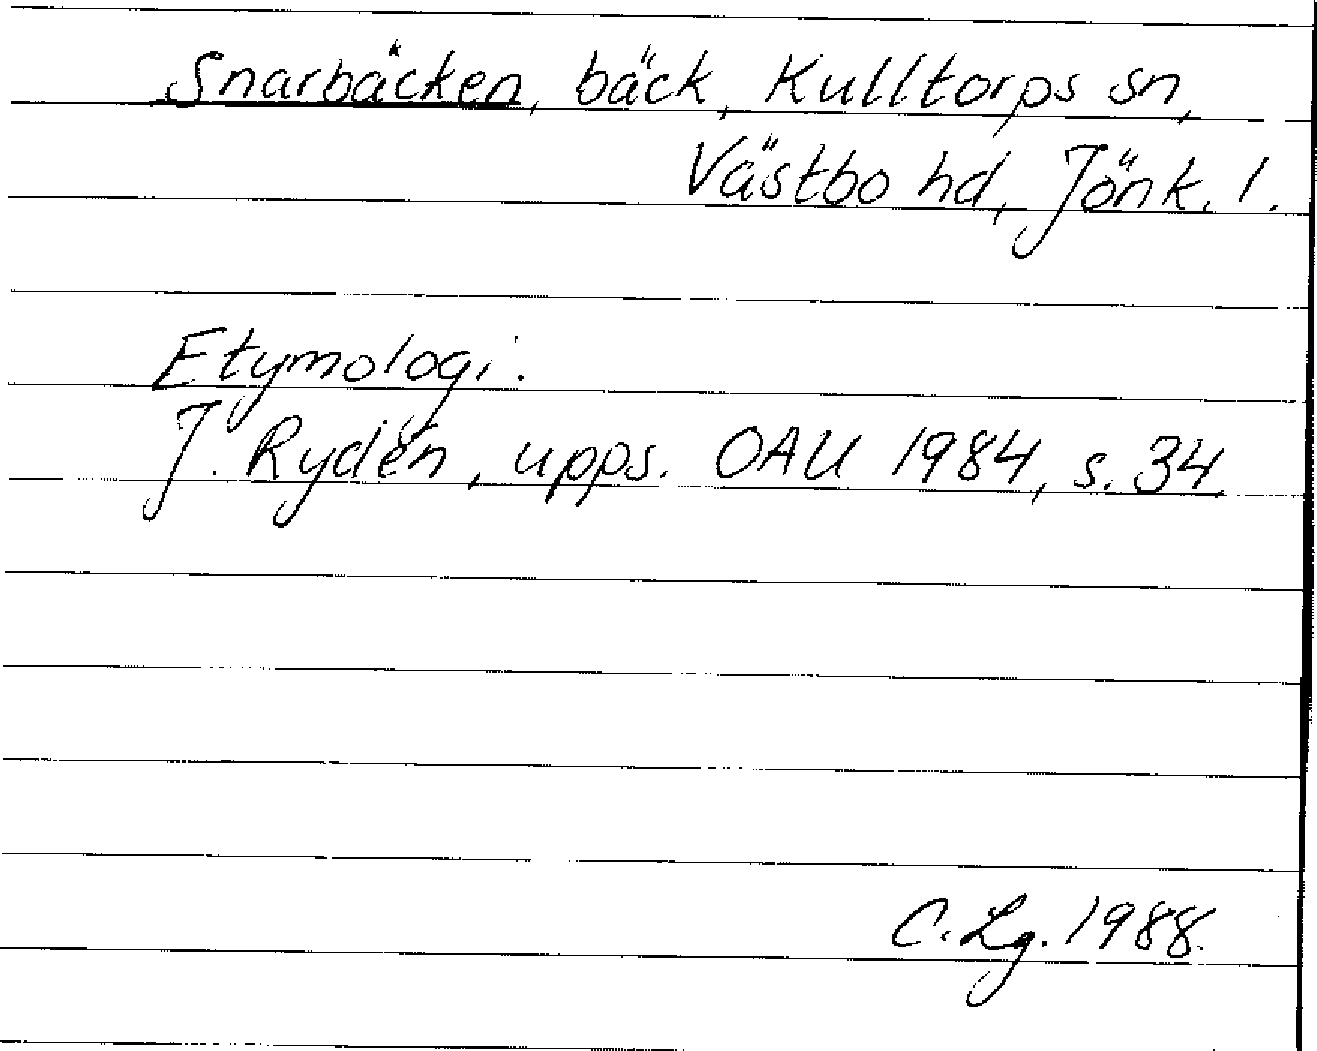 Snarbäcken, bäck, Kulltorps sn,
Västbo hd, Jönk. l.
Etymologi:
J. Rydén, upps. OAU 1984, s. 34
C. Lg. 1988.